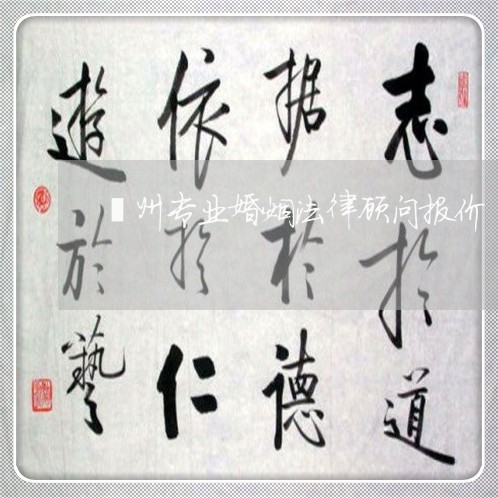 志於道
据於德
依於仁
遊於藝
州专业婚姻法律顾问报价